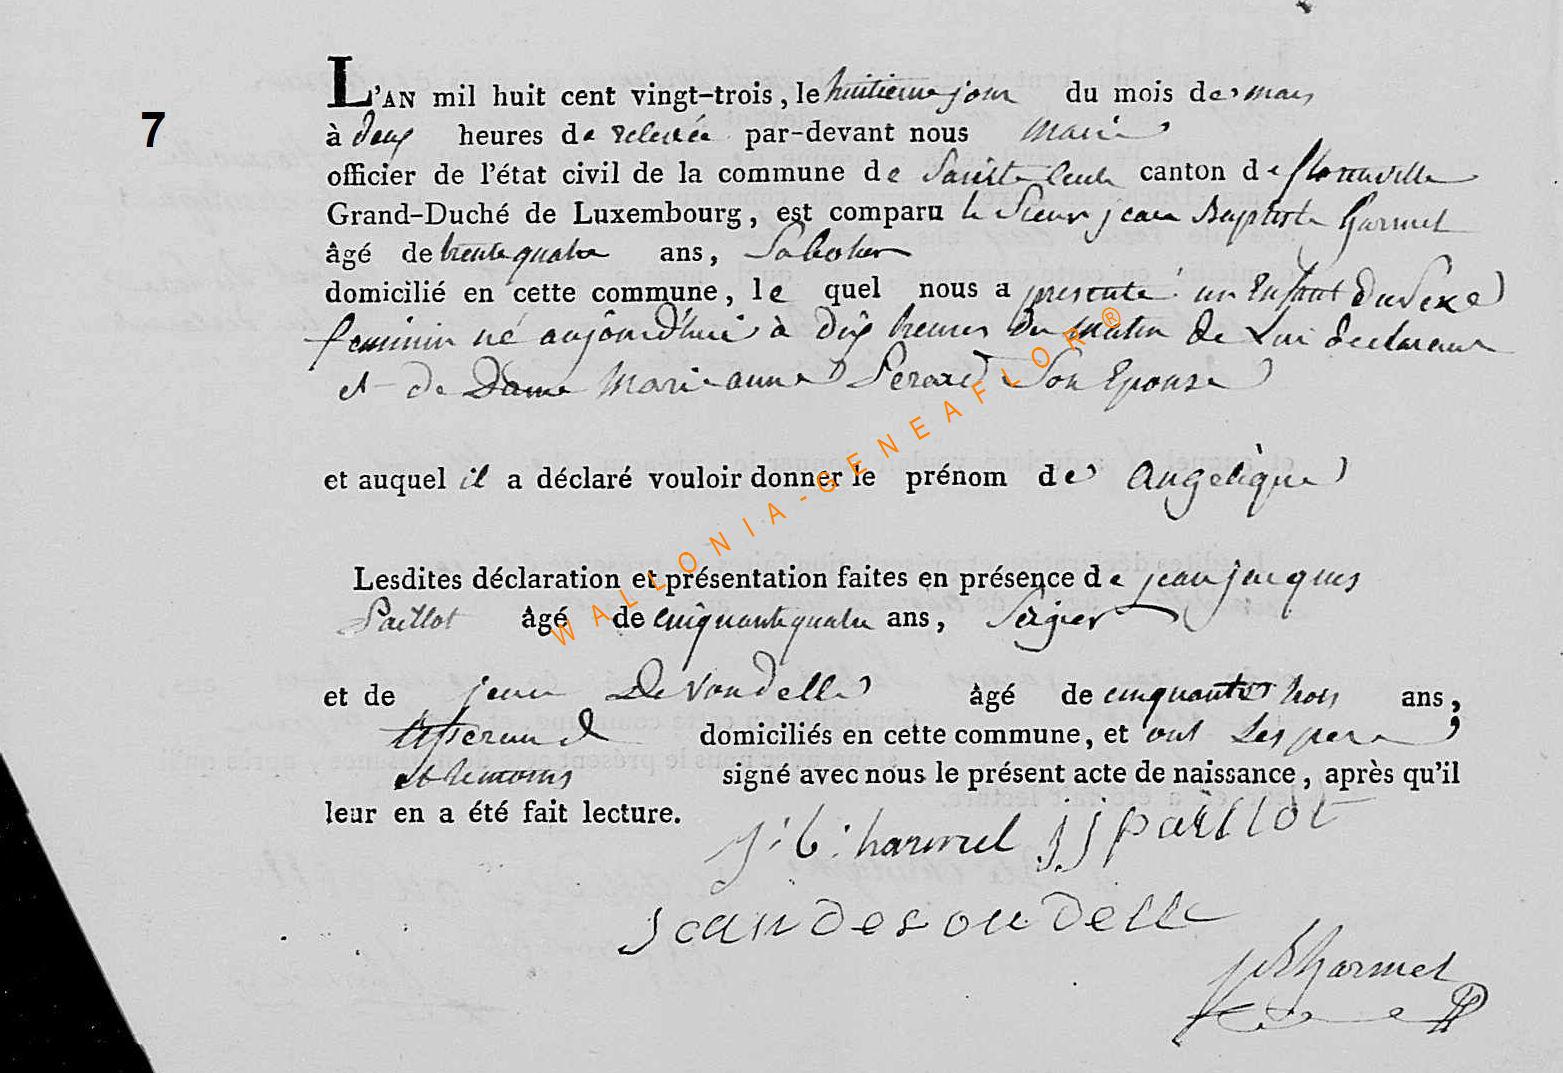 L'AN mil huit cent vingt-trois, le huitieme jour du mois de mars
7
à deux heures de relevée par-devant nous Maire
officier de l'état civil de la commune de Sainte Cecile canton de florenville
Grand-Duché de Luxembourg, est comparu le Sieur jean Baptiste harmel
âgé de trente quatre ans, Sabotier
domicilié en cette commune, le quel nous a presenté un Enfant du Sexe
feminin né aujourd'hui à dix heures du matin de Lui declarant
et de Dame Marie anne Perard Son Epouse
et auquel il a déclaré vouloir donner le prénom de angelique
Lesdites déclaration et présentation faites en présence de jean jacques
Paillot âgé de cinquante quatre ans,
et de jean De voudelle âgé de cinquante trois ans,
tisserand domiciliés en cette commune, et ont Les pere
et temoins signé avec nous le présent acte de naissance, après qu'il
leur en a été fait lecture.
j: b: harmel jj paillot
jean desoudelle
harmel
WALLONIA-GENEAFLOR®